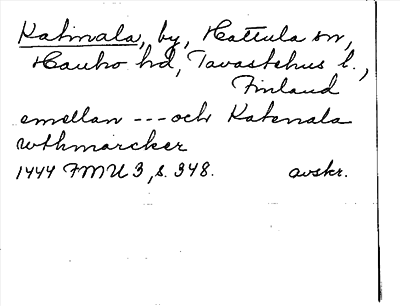 Katinala, by, Hattula sn,
Hauho hd, Tavastehus l.,
Finland
emellan --- och Katenala
wthmarcker
1444 FMU 3, s. 348. avskr.